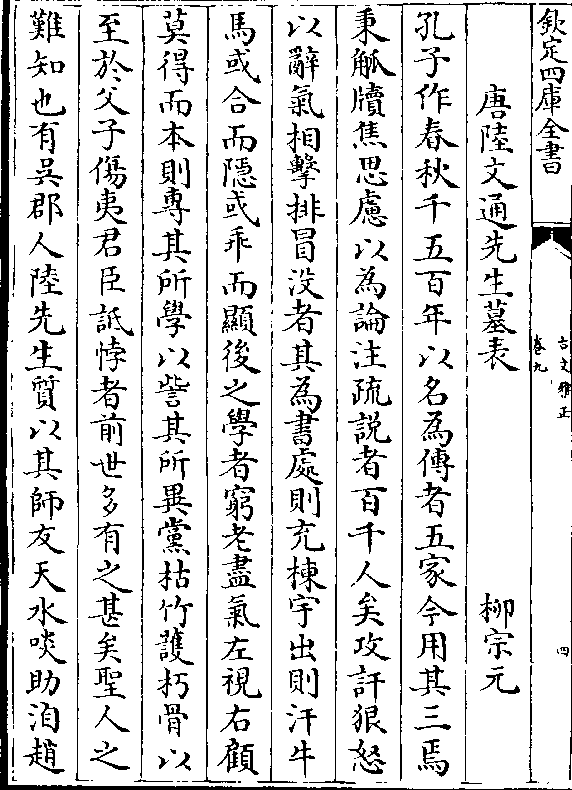 欽定四庫全書
古文雅正
卷九
四
唐陸文通先生墓表 柳宗元
孔子作春秋千五百年以名為傳者五家今用其三焉
秉觚牘焦思慮以為論注疏說者百千人矣攻訐狠怒
以辭氣相擊排冒没者其為書處則充棟宇出則汗牛
馬或合而隱或乖而顯後之學者窮老盡氣左視右顧
莫得而本則專其所學以訾其所異黨枯竹護朽骨以
至於父子傷夷君臣詆悖者前世多有之甚矣聖人之
難知也有吳郡人陸先生質以其師友天水啖助洎趙